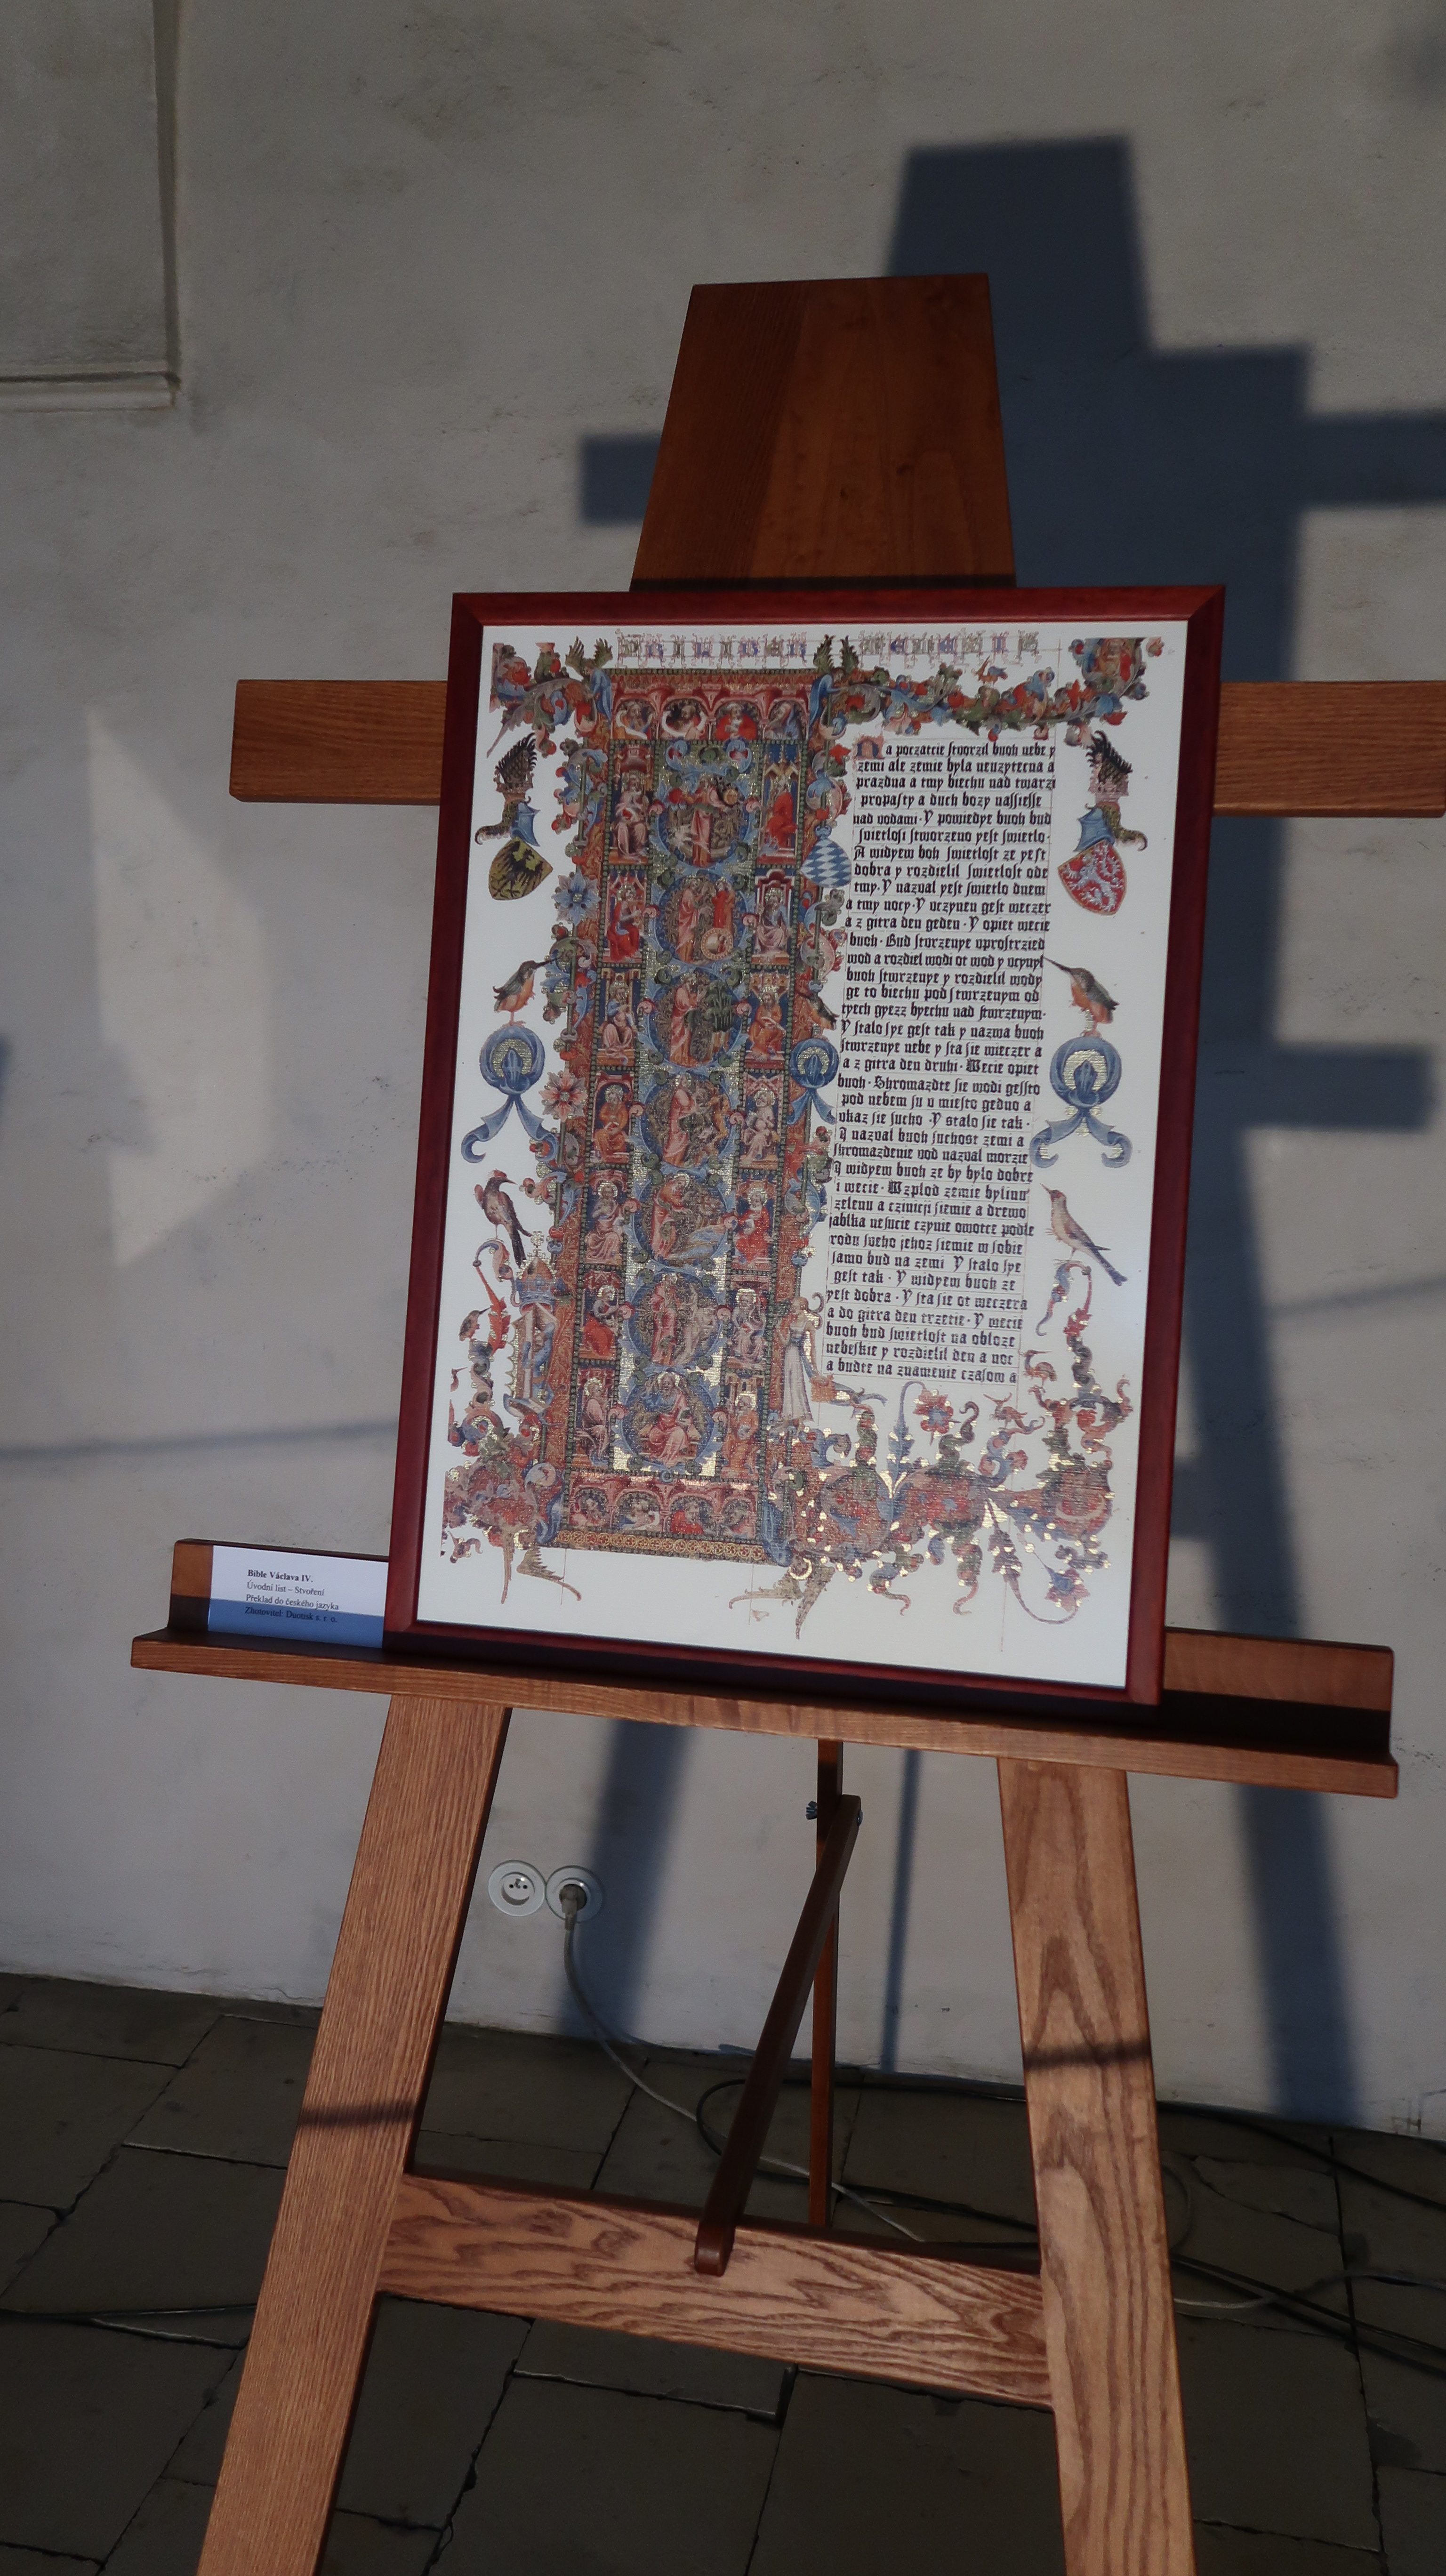 Na poczatcie stvorzil buoh nebe y
zemi ale zemie byla neuzytecna a
prazdna a tmy biechu nad twarzi
propasty a duch bozy nassiesse
nad vodami · Y powiedye buoh bud
swietlost stworzeno yest swietlo ·
A widyew boh swietlost ze yest
dobra y rozdielil swietlost ode
tmy · Y nazval yest swietlo dnem
a tmy nocy · Y vczynen gest weczer
a z gitra den geden · Y opiet wecie
buoh · Bud stwrzenye vprostrzied
wod a rozdiel wodi ot wod y vcynyl
buoh stwrzenye y rozdielil wody
ge to biechu pod stwrzenym od
tyech gyezz byechu nad stwrzenym ·
Y stalo sye gest tak y nazwa buoh
stwrzenye nebe y sta sie wieczer a
a z gitra den druhi · Wecie opiet
buoh · Shromazdte sie wodi gessto
pod nebem su v miesto gedno a
vkaz sie sucho · Y stalo sie tak ·
Y nazval buoh suchost zemi a
shromazdenie vod nazval morzie
Y widyew buoh ze by bylo dobre
i wecie · Wzplod zemie bylinu
zelenu a cziniici siemie a drewo
jablka nesucie czynie owotce podle
rodu sveho jehoz siemie w sobie
samo bud na zemi Y stalo sye
gest tak · Y widyew buoh ze
yest dobra · Y sta sie ot weczera
a do gitra den trzetie · Y wecie
buoh bud swietlost na obloze
nebeskie y rozdielil den a noc
a budte na znamenie czasow a
Bible Václava IV.
Úvodní list – Stvoření
Překlad do českého jazyka
Zhotovitel: Duotisk s. r. o.